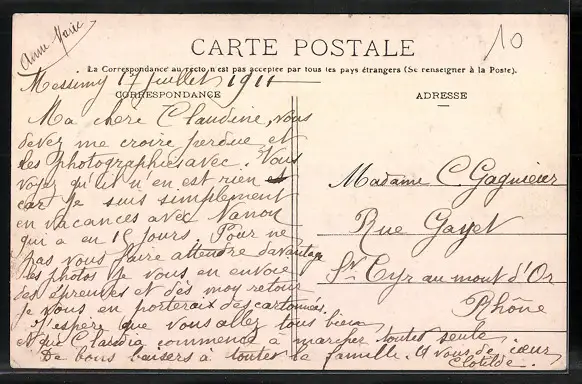 Anne Marie
10
CARTE POSTALE
La Correspondance au recto n'est pas acceptée par tous les pays étrangers (Se renseigner à la Poste).
Messimy 17 juillet 1911
CORRESPONDANCE
Ma chere Claudine, vous
devez me croire perdue et
les photographies avec. Vous
voyez qu'il n'en est rien et
car je suis simplement
en vacances avec Nanon
qui a en 15 jours. Pour ne
pas vous faire attendre davantage
les photos je vous en envoie
des épreuves et dès moy retour
je vous en porterai des cartonnées.
J'espère que vous allez tous bien
et que Claudia commence à marcher toute seule
De bons baisers à toute la famille. A vous de cœur
Clotilde.
ADRESSE
Madame C. Gagnieur
Rue Gayet
St Cyr au mont d'Or
Rhône